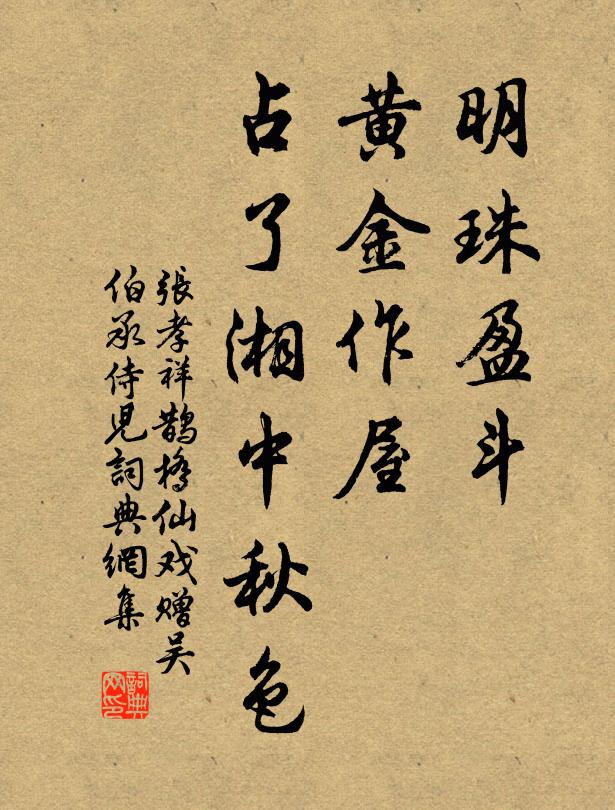 明珠盈斗
黄金作屋
占了湘中秋色
張孝祥鵲橋仙戏赠吴
伯承侍兒詞典網集
詞典
网印